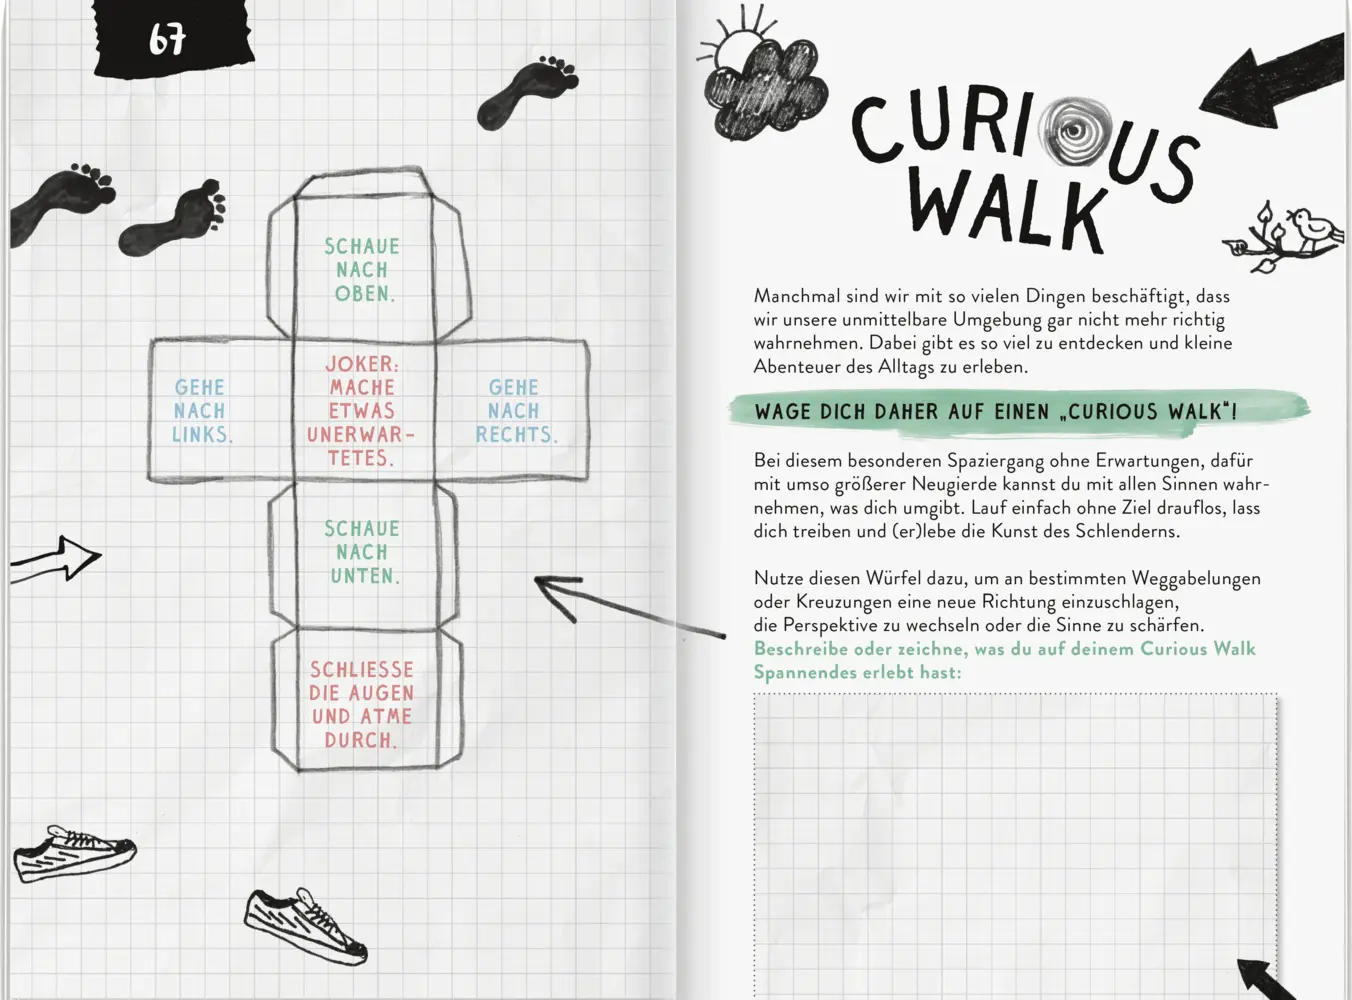 67
SCHAUE
NACH
OBEN.
GEHE
NACH
LINKS.
JOKER:
MACHE
ETWAS
UNERWAR-
TETES.
GEHE
NACH
RECHTS.
SCHAUE
NACH
UNTEN.
SCHLIESSE
DIE AUGEN
UND ATME
DURCH.
CURIOUS
WALK
Manchmal sind wir mit so vielen Dingen beschäftigt, dass
wir unsere unmittelbare Umgebung gar nicht mehr richtig
wahrnehmen. Dabei gibt es so viel zu entdecken und kleine
Abenteuer des Alltags zu erleben.
WAGE DICH DAHER AUF EINEN „CURIOUS WALK“!
Bei diesem besonderen Spaziergang ohne Erwartungen, dafür
mit umso größerer Neugierde kannst du mit allen Sinnen wahr-
nehmen, was dich umgibt. Lauf einfach ohne Ziel drauflos, lass
dich treiben und (er)lebe die Kunst des Schlenderns.
Nutze diesen Würfel dazu, um an bestimmten Weggabelungen
oder Kreuzungen eine neue Richtung einzuschlagen,
die Perspektive zu wechseln oder die Sinne zu schärfen.
Beschreibe oder zeichne, was du auf deinem Curious Walk
Spannendes erlebt hast: